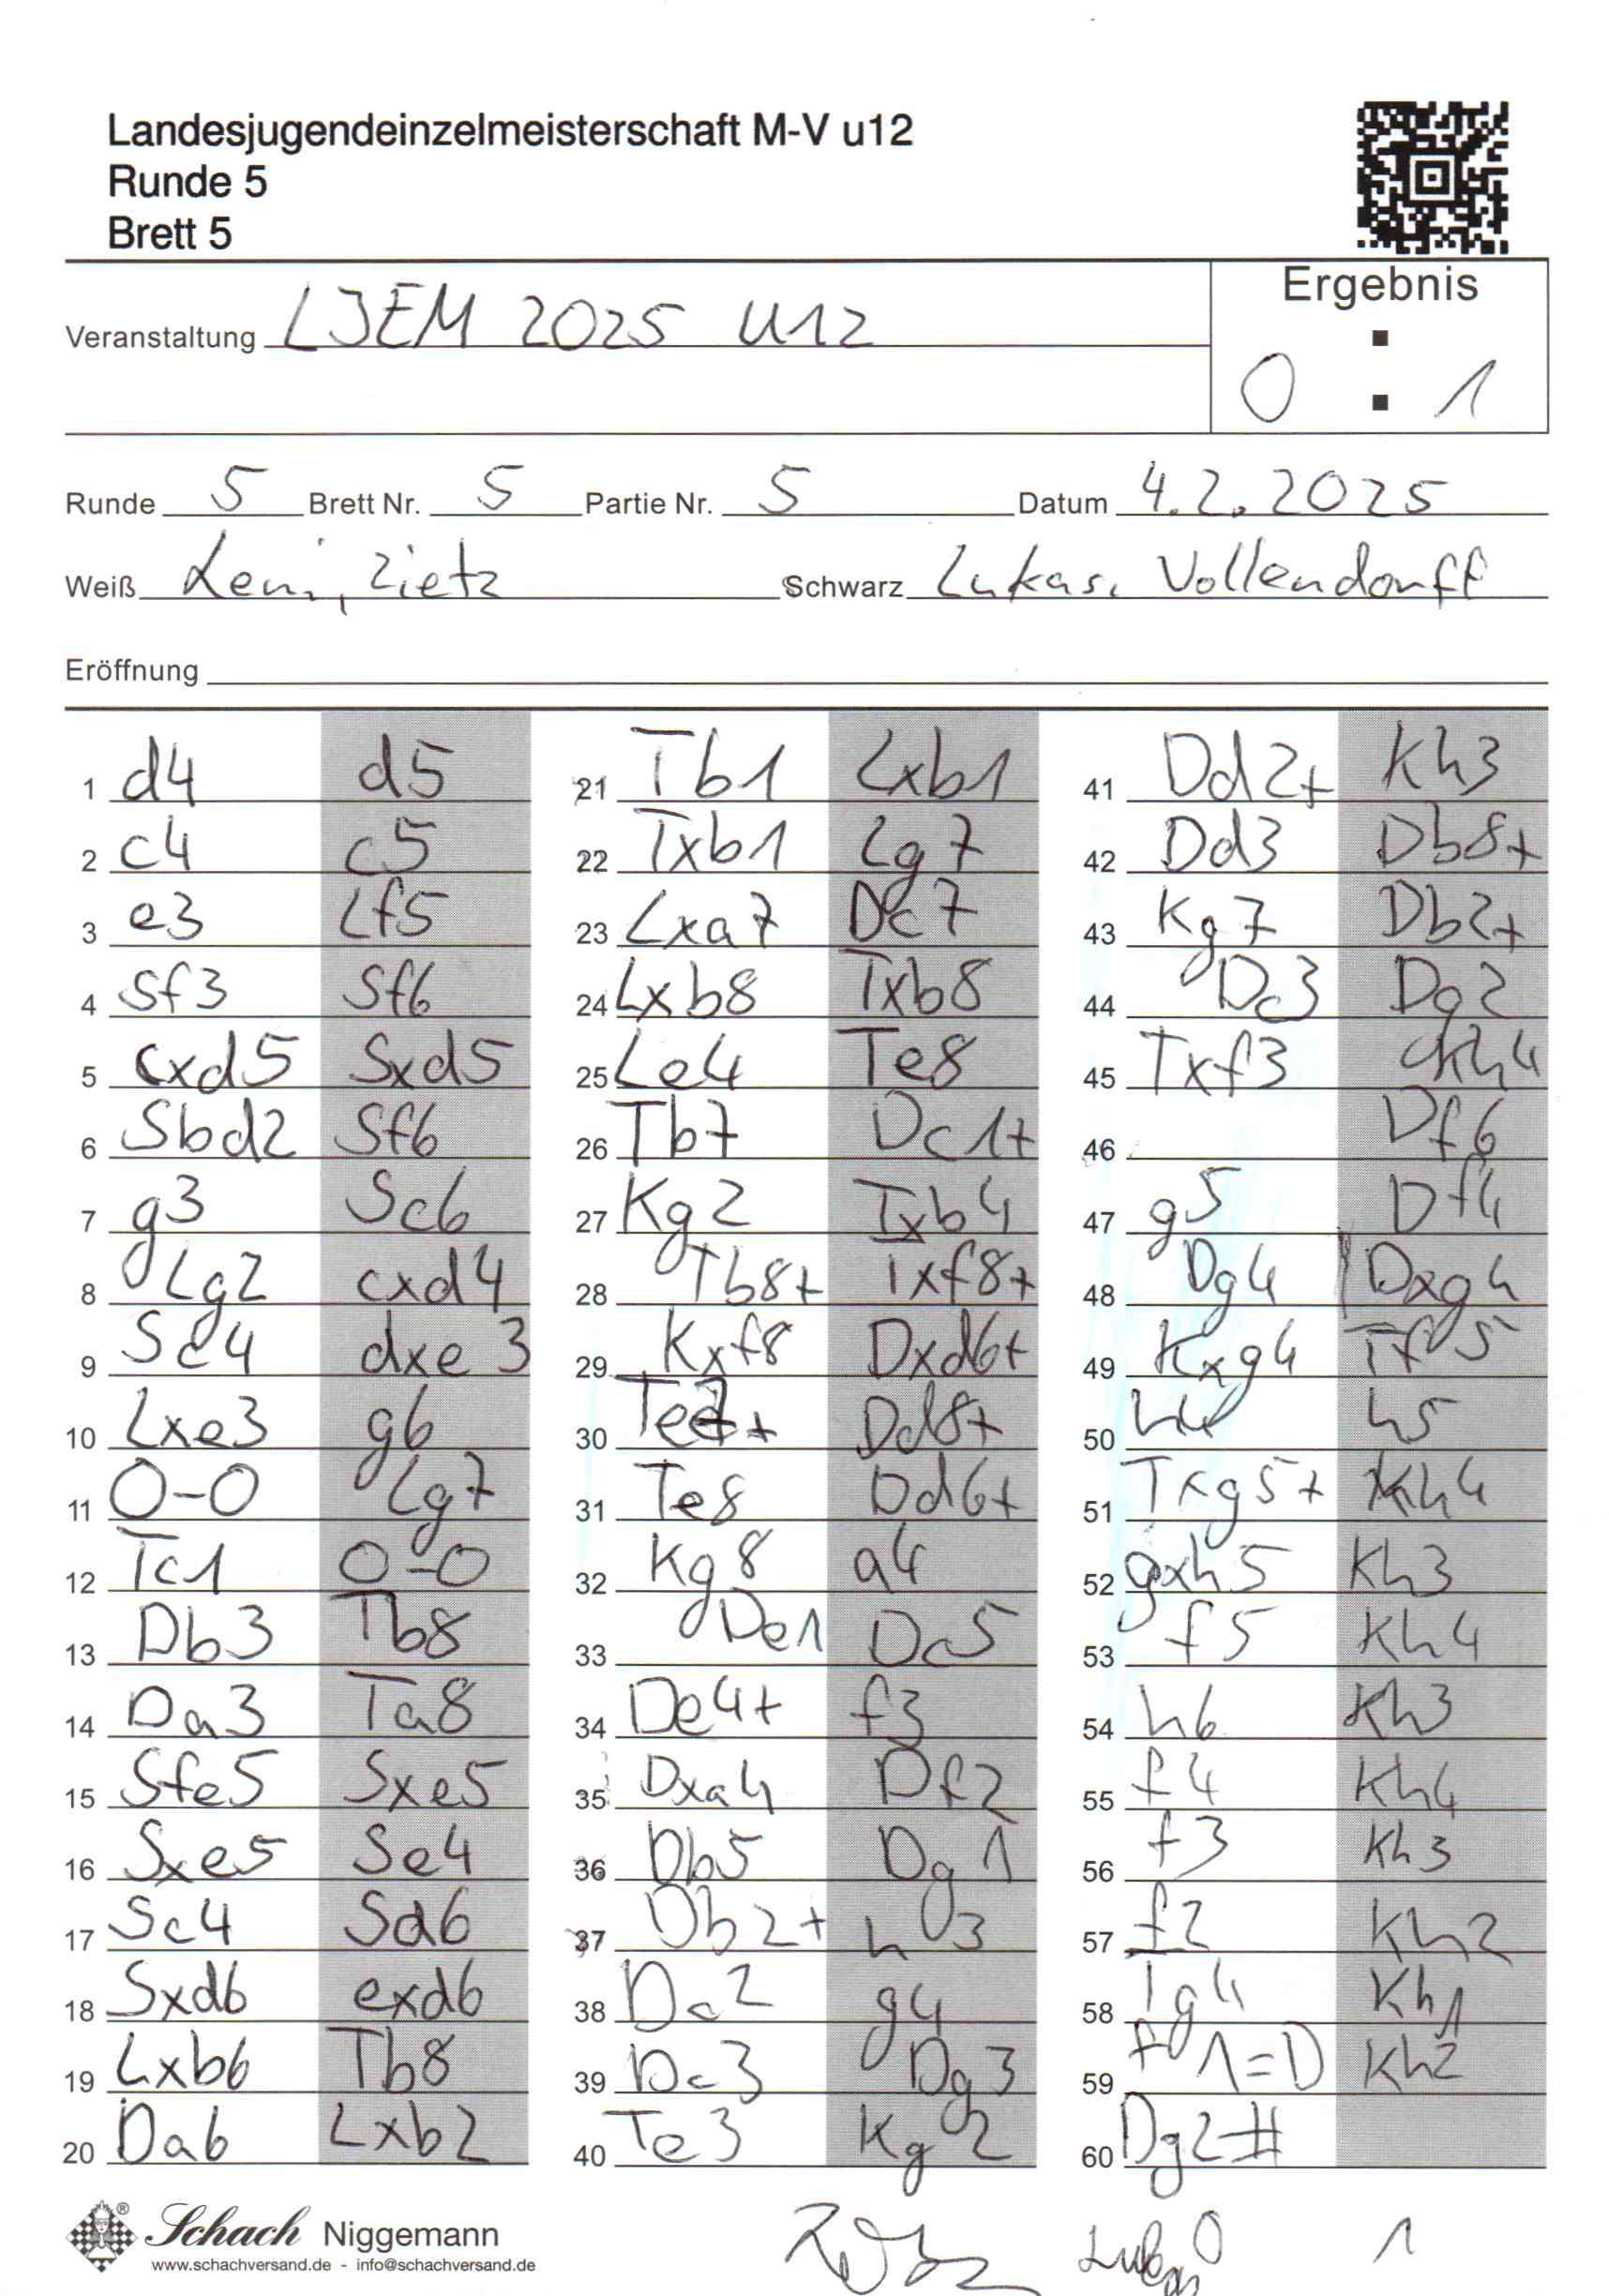 Landesjugendeinzelmeisterschaft M-V u12
Runde 5
Brett 5
Ergebnis
Veranstaltung LJEM 2025 U12
0 : 1
Runde 5 Brett Nr. 5 Partie Nr. 5 Datum 4.2.2025
Weiß Leni, Zietz Schwarz Lukas, Vollendorff
Eröffnung
1 d4 d5
2 c4 c5
3 e3 Lf5
4 Sf3 Sf6
5 cxd5 Sxd5
6 Sbd2 Sf6
7 g3 Sc6
8 Lg2 cxd4
9 Sc4 dxe3
10 Lxe3 g6
11 0-0 Lg7
12 Tc1 0-0
13 Db3 Tb8
14 Da3 Ta8
15 Sfe5 Sxe5
16 Sxe5 Se4
17 Sc4 Sd6
18 Sxd6 exd6
19 Lxb6 Tb8
20 Da6 Lxb2
21 Tb1 Lxb1
22 Txb1 Lg7
23 Lxa7 Dc7
24 Lxb8 Txb8
25 Le4 Te8
26 Tb7 Dc1+
27 Kg2 Txb4
28 Tb8+ Txf8+
29 Kxf8 Dxd6+
30 Te7+ Dd8+
31 Te8 Dd6+
32 Kg8 a4
33 De1 Dc5
34 De4+ f3
35 Dxa4 Df2
36 Db5 Dg1
37 Db2+ h3
38 Dc2 g4
39 Dc3 Dg3
40 Te3 Kg2
41 Dd2+ Kh3
42 Dd3 Db8+
43 Kg7 Db2+
44 Dc3 Dg2
45 Txf3 Kh4
46 Df6
47 g5 Df4
48 Dg4 Dxg4
49 Kxg4 Tf5
50 h4 h5
51 Txg5+ Kh4
52 gxh5 Kh3
53 f5 Kh4
54 h6 Kh3
55 f4 Kh4
56 f3 Kh3
57 f2 Kh2
58 Tg4 Kh1
59 f1=D Kh2
60 Dg2#
Schach Niggemann
www.schachversand.de - info@schachversand.de
Lukas 0 1